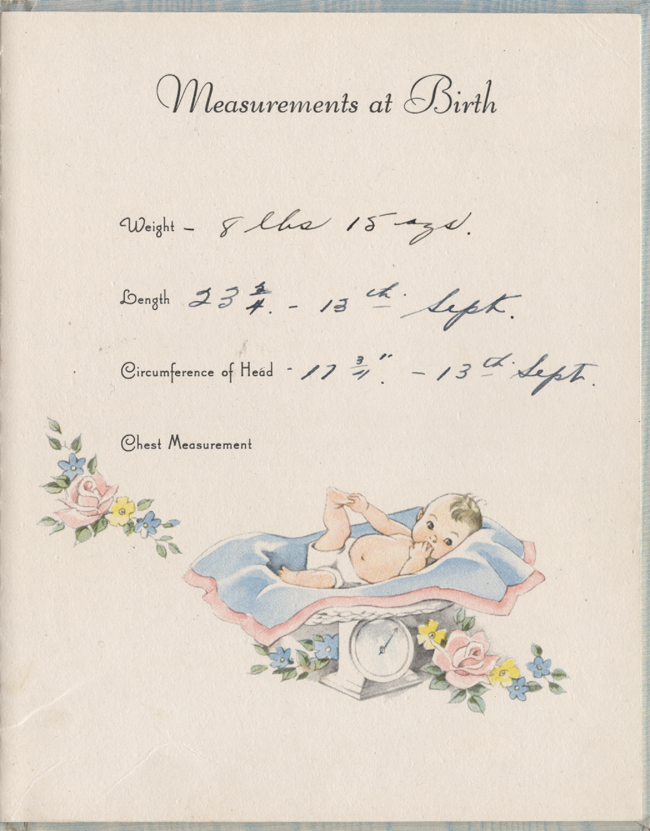 Measurements at Birth
Weight - 8 lbs 15 ozs.
Length 23 3/4. - 13th Sept.
Circumference of Head - 17 3/4". - 13th Sept.
Chest Measurement